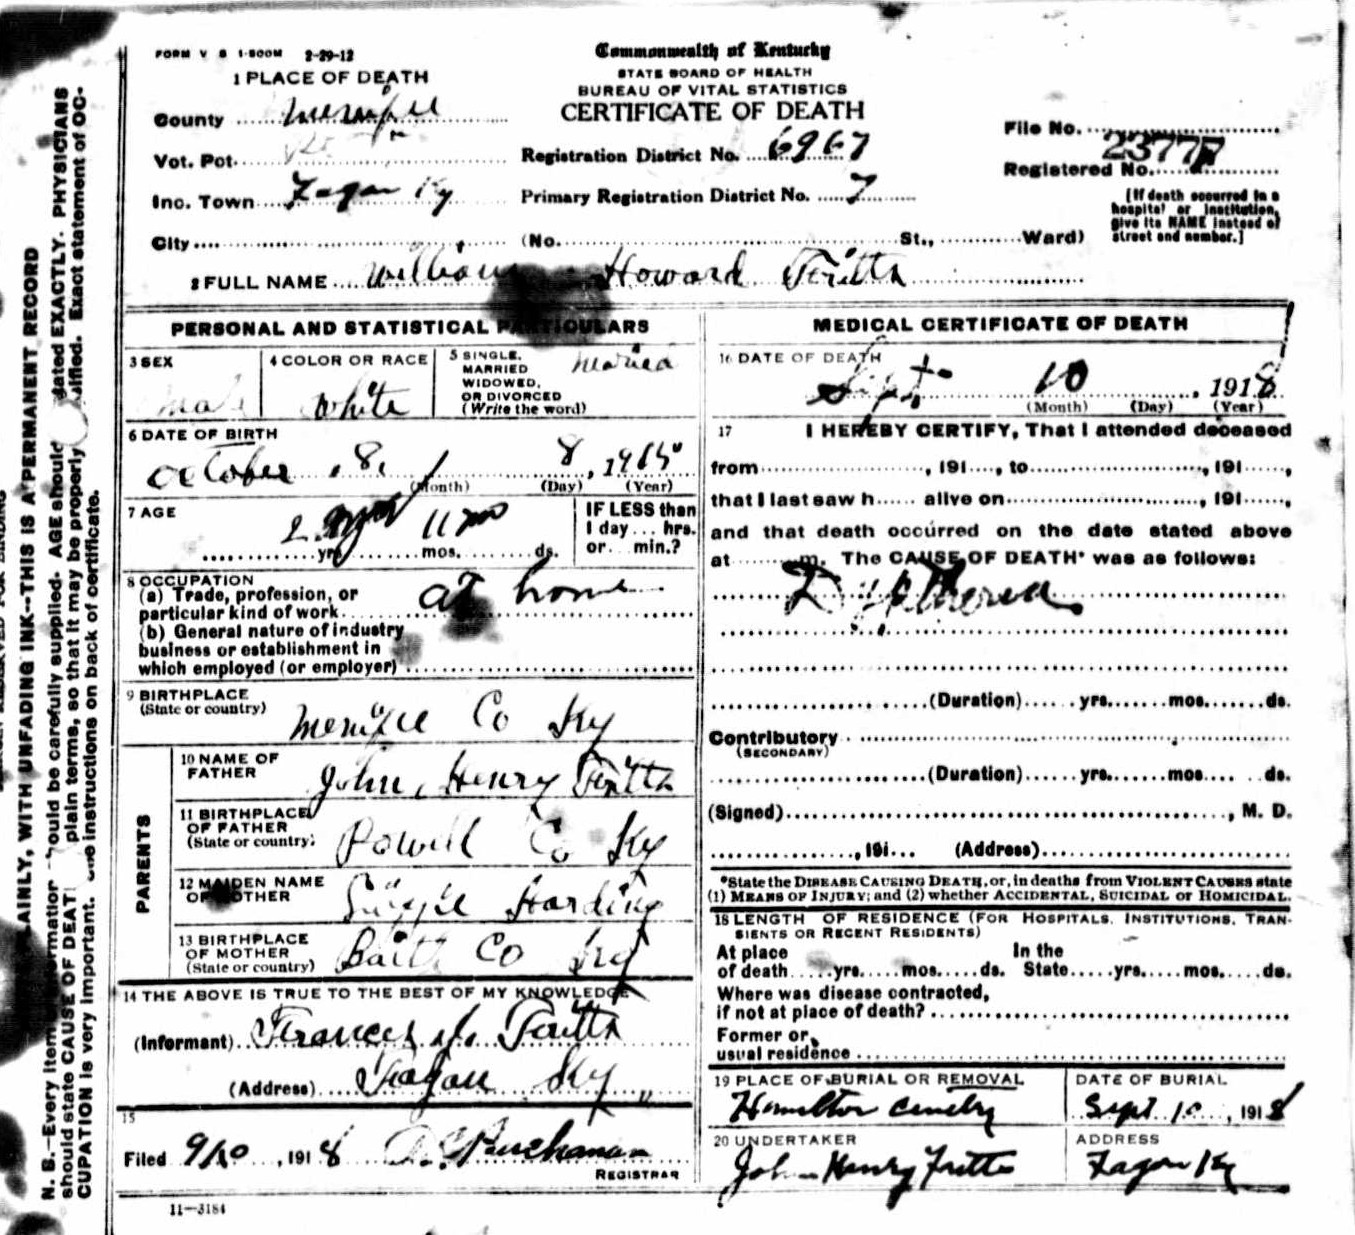 FORM V S 1-500M 2-29-12
Commonwealth of Kentucky
STATE BOARD OF HEALTH
BUREAU OF VITAL STATISTICS
CERTIFICATE OF DEATH
1 PLACE OF DEATH
County Menifee
Vot. Pct.
Inc. Town Fagan Ky
City
Registration District No. 6967
Primary Registration District No. 7
(No. St., Ward)
File No. 23777
Registered No.
[If death occurred in a
hospital or institution,
give its NAME instead of
street and number.]
2 FULL NAME William Howard Fritts
PERSONAL AND STATISTICAL PARTICULARS
3 SEX
Male
4 COLOR OR RACE
White
5 SINGLE,
MARRIED
WIDOWED,
OR DIVORCED
(Write the word)
Married
6 DATE OF BIRTH
October 8, 8, 1915
(Month) (Day) (Year)
7 AGE
2 yrs 11 mo
yrs. mos. ds.
IF LESS than
1 day... hrs.
or... min.?
8 OCCUPATION
(a) Trade, profession, or
particular kind of work at home
(b) General nature of industry
business or establishment in
which employed (or employer)
9 BIRTHPLACE
(State or country)
Menifee Co Ky
PARENTS
10 NAME OF
FATHER
John Henry Fritts
11 BIRTHPLACE
OF FATHER
(State or country)
Powell Co Ky
12 MAIDEN NAME
OF MOTHER
Harding
13 BIRTHPLACE
OF MOTHER
(State or country)
Bath Co Ky
14 THE ABOVE IS TRUE TO THE BEST OF MY KNOWLEDGE
(Informant) Frances J. Fritts
(Address) Fagan Ky
15
Filed 9/10, 1918 Buchanan
REGISTRAR
11—3184
MEDICAL CERTIFICATE OF DEATH
16 DATE OF DEATH
Sept 10, 1918
(Month) (Day) (Year)
17 I HEREBY CERTIFY, That I attended deceased
from , 191 , to , 191 ,
that I last saw h alive on , 191 ,
and that death occurred on the date stated above
at m. The CAUSE OF DEATH* was as follows:
(Duration) yrs. mos. ds.
Contributory
(SECONDARY)
(Duration) yrs. mos. ds.
(Signed) , M. D.
, 191 (Address)
*State the DISEASE CAUSING DEATH, or, in deaths from VIOLENT CAUSES state
(1) MEANS OF INJURY; and (2) whether ACCIDENTAL, SUICIDAL OR HOMICIDAL.
18 LENGTH OF RESIDENCE (FOR HOSPITALS, INSTITUTIONS, TRAN-
SIENTS OR RECENT RESIDENTS)
At place In the
of death yrs. mos. ds. State yrs. mos. ds.
Where was disease contracted,
if not at place of death?
Former or
usual residence
19 PLACE OF BURIAL OR REMOVAL
Hamilton
DATE OF BURIAL
Sept 10, 1918
20 UNDERTAKER
John Henry Fritts
ADDRESS
Fagan Ky
AINLY, WITH UNFADING INK--THIS IS A PERMANENT RECORD
N. B.—Every item ormation ould be carefully supplied. AGE should ated EXACTLY. PHYSICIANS
should state CAUSE OF DEAT plain terms, so that it may be properly ssified. Exact statement of OC-
CUPATION is very important. instructions on back of certificate.